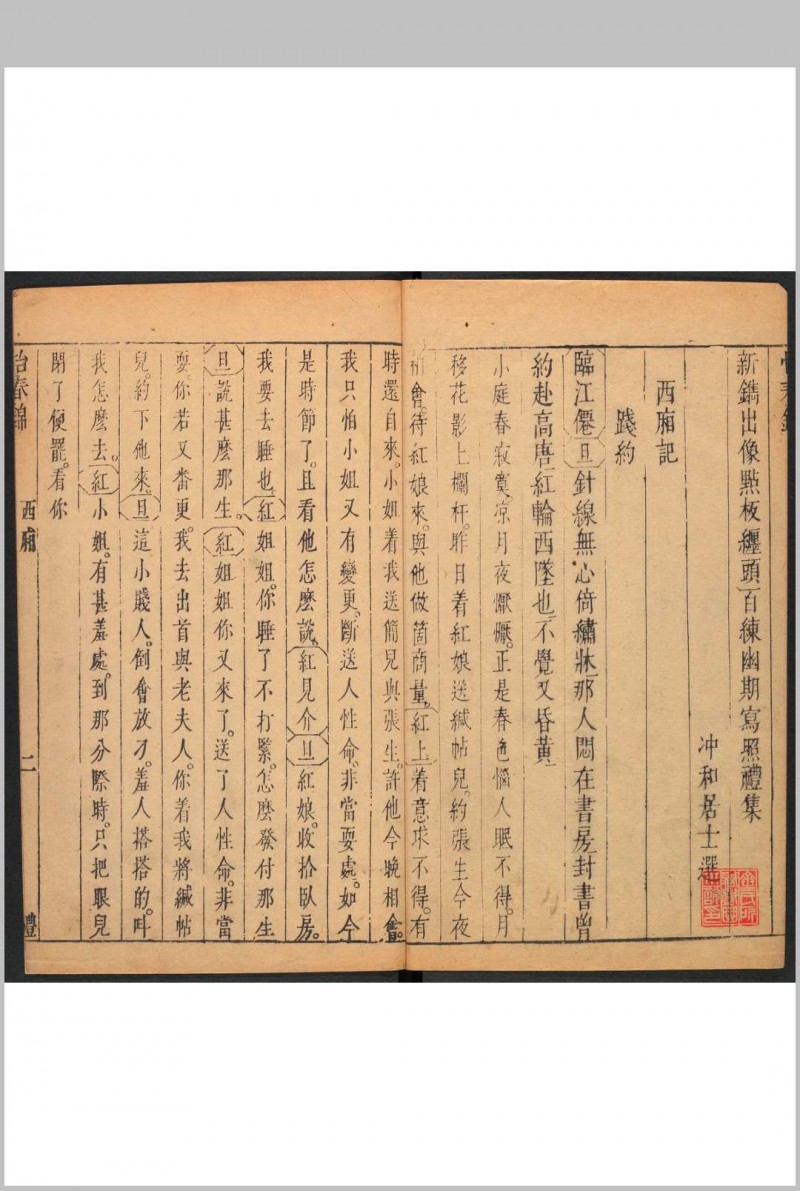 新鐫出像點板纏頭百練幽期寫照禮集
冲和居士選
西廂記
踐約
臨江僊旦針線無心倚繡牀那人悶在書房封書曾
約赴高唐紅輪西墜也不覺又昏黃
小庭春寂寞凉月夜懨懨正是春色惱人眠不得月
移花影上欄杆昨日着紅娘送緘帖兒約張生今夜
相會待紅娘來與他做箇商量紅上着意求不得有
時還自來小姐着我送簡兒與張生許他今晚相會
我只怕小姐又有變更斷送人性命非當耍處如今
是時節了且看他怎麼說紅見介旦紅娘收拾臥房
我要去睡也紅姐姐你睡了不打緊怎麼發付那生
旦說甚麼那生紅姐姐你又來了送了人性命非當
耍你若又畨更我去出首與老夫人你着我將緘帖
兒約下他來旦這小賤人倒會放刁羞人搭搭的呌
我怎麼去紅小姐有甚羞處到那分際時只把眼兒
閉了便罷看你
怡春錦 西廂 二 禮